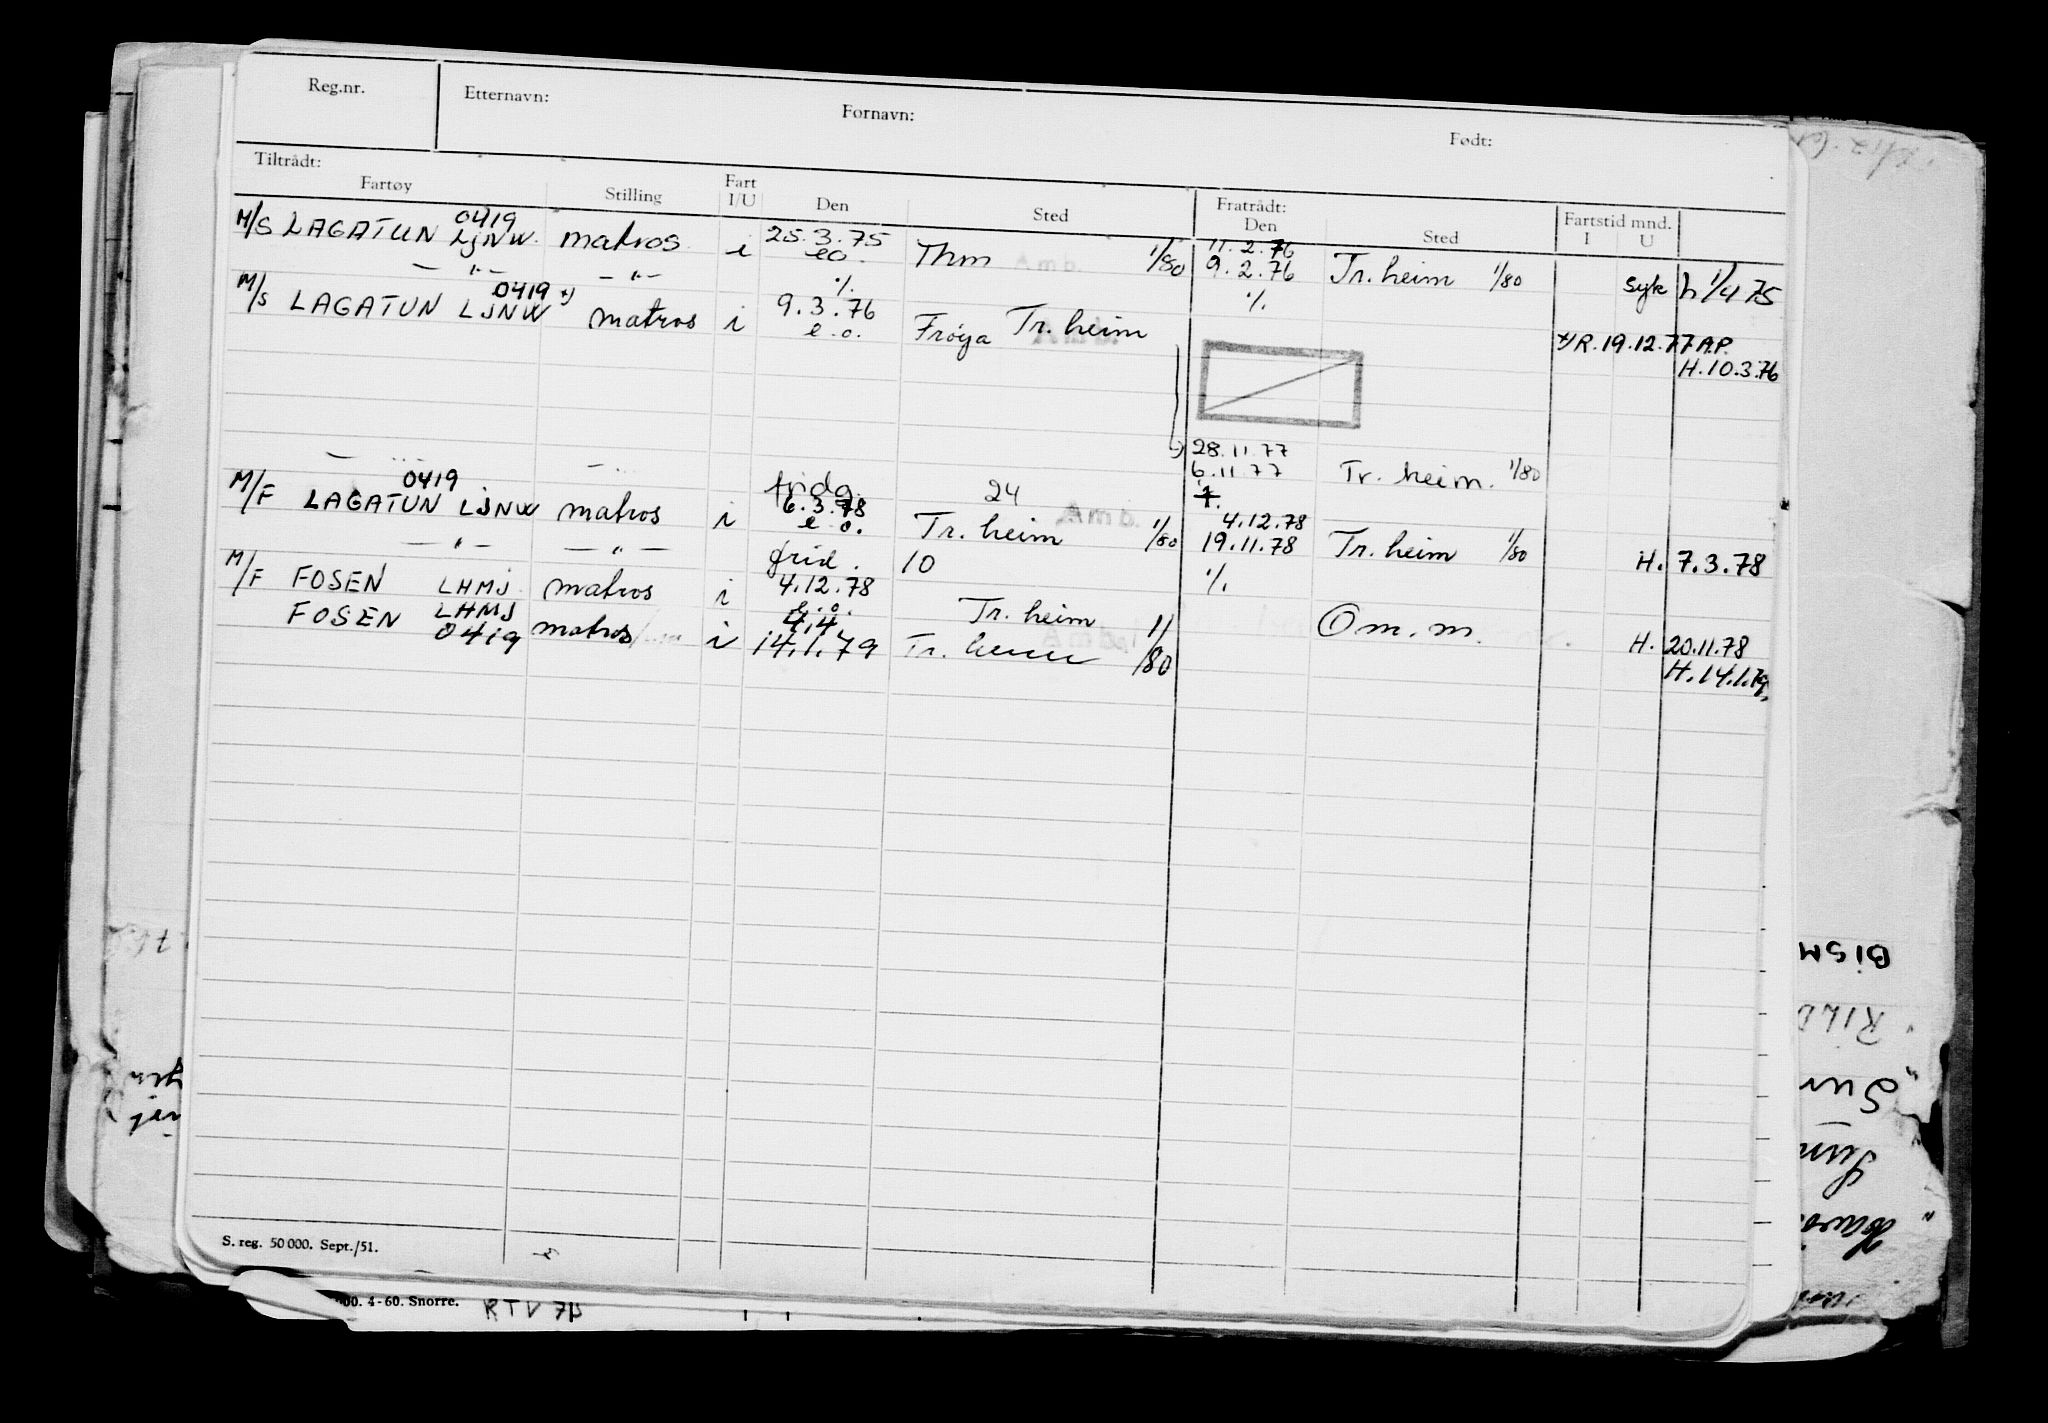 Reg.nr. Etternavn: Fornavn: Født:
Tiltrådt: Fratrådt:
Fartøy Stilling Fart I/U Den Sted Den Sted Fartstid mnd. I U
0419 25.3.75 11.2.76
M/S LAGATUN LJNW. matros i eo. Thm Amb. 1/80 9.2.76 Tr.heim 1/80 syk h 1/4 75
— " — — " — %. %.
0419 +) 9.3.76
M/S LAGATUN LJNW matros i e.o. Frøya Tr. heim +)R.19.12.77 A.P.
H.10.3.76
28.11.77
6.11.77 Tr. heim. 1/80
0419 fridg. 24
M/F LAGATUN LJNW matros i 6.3.78 e.o. Tr. heim Amb. 1/80 4.12.78 19.11.78 Tr.heim 1/80 H. 7.3.78
— " — — " — frid. 10 %.
M/F FOSEN LHMJ matros i 4.12.78 e.o. Tr. heim 1/ Om.m. H. 20.11.78
FOSEN LHMJ 0419 matros i 14.1.79 Tr. heim /80 H.14.1.79,
S. reg. 50 000. Sept./51.
00. 4-60. Snorre. RTV 7µ
BISM